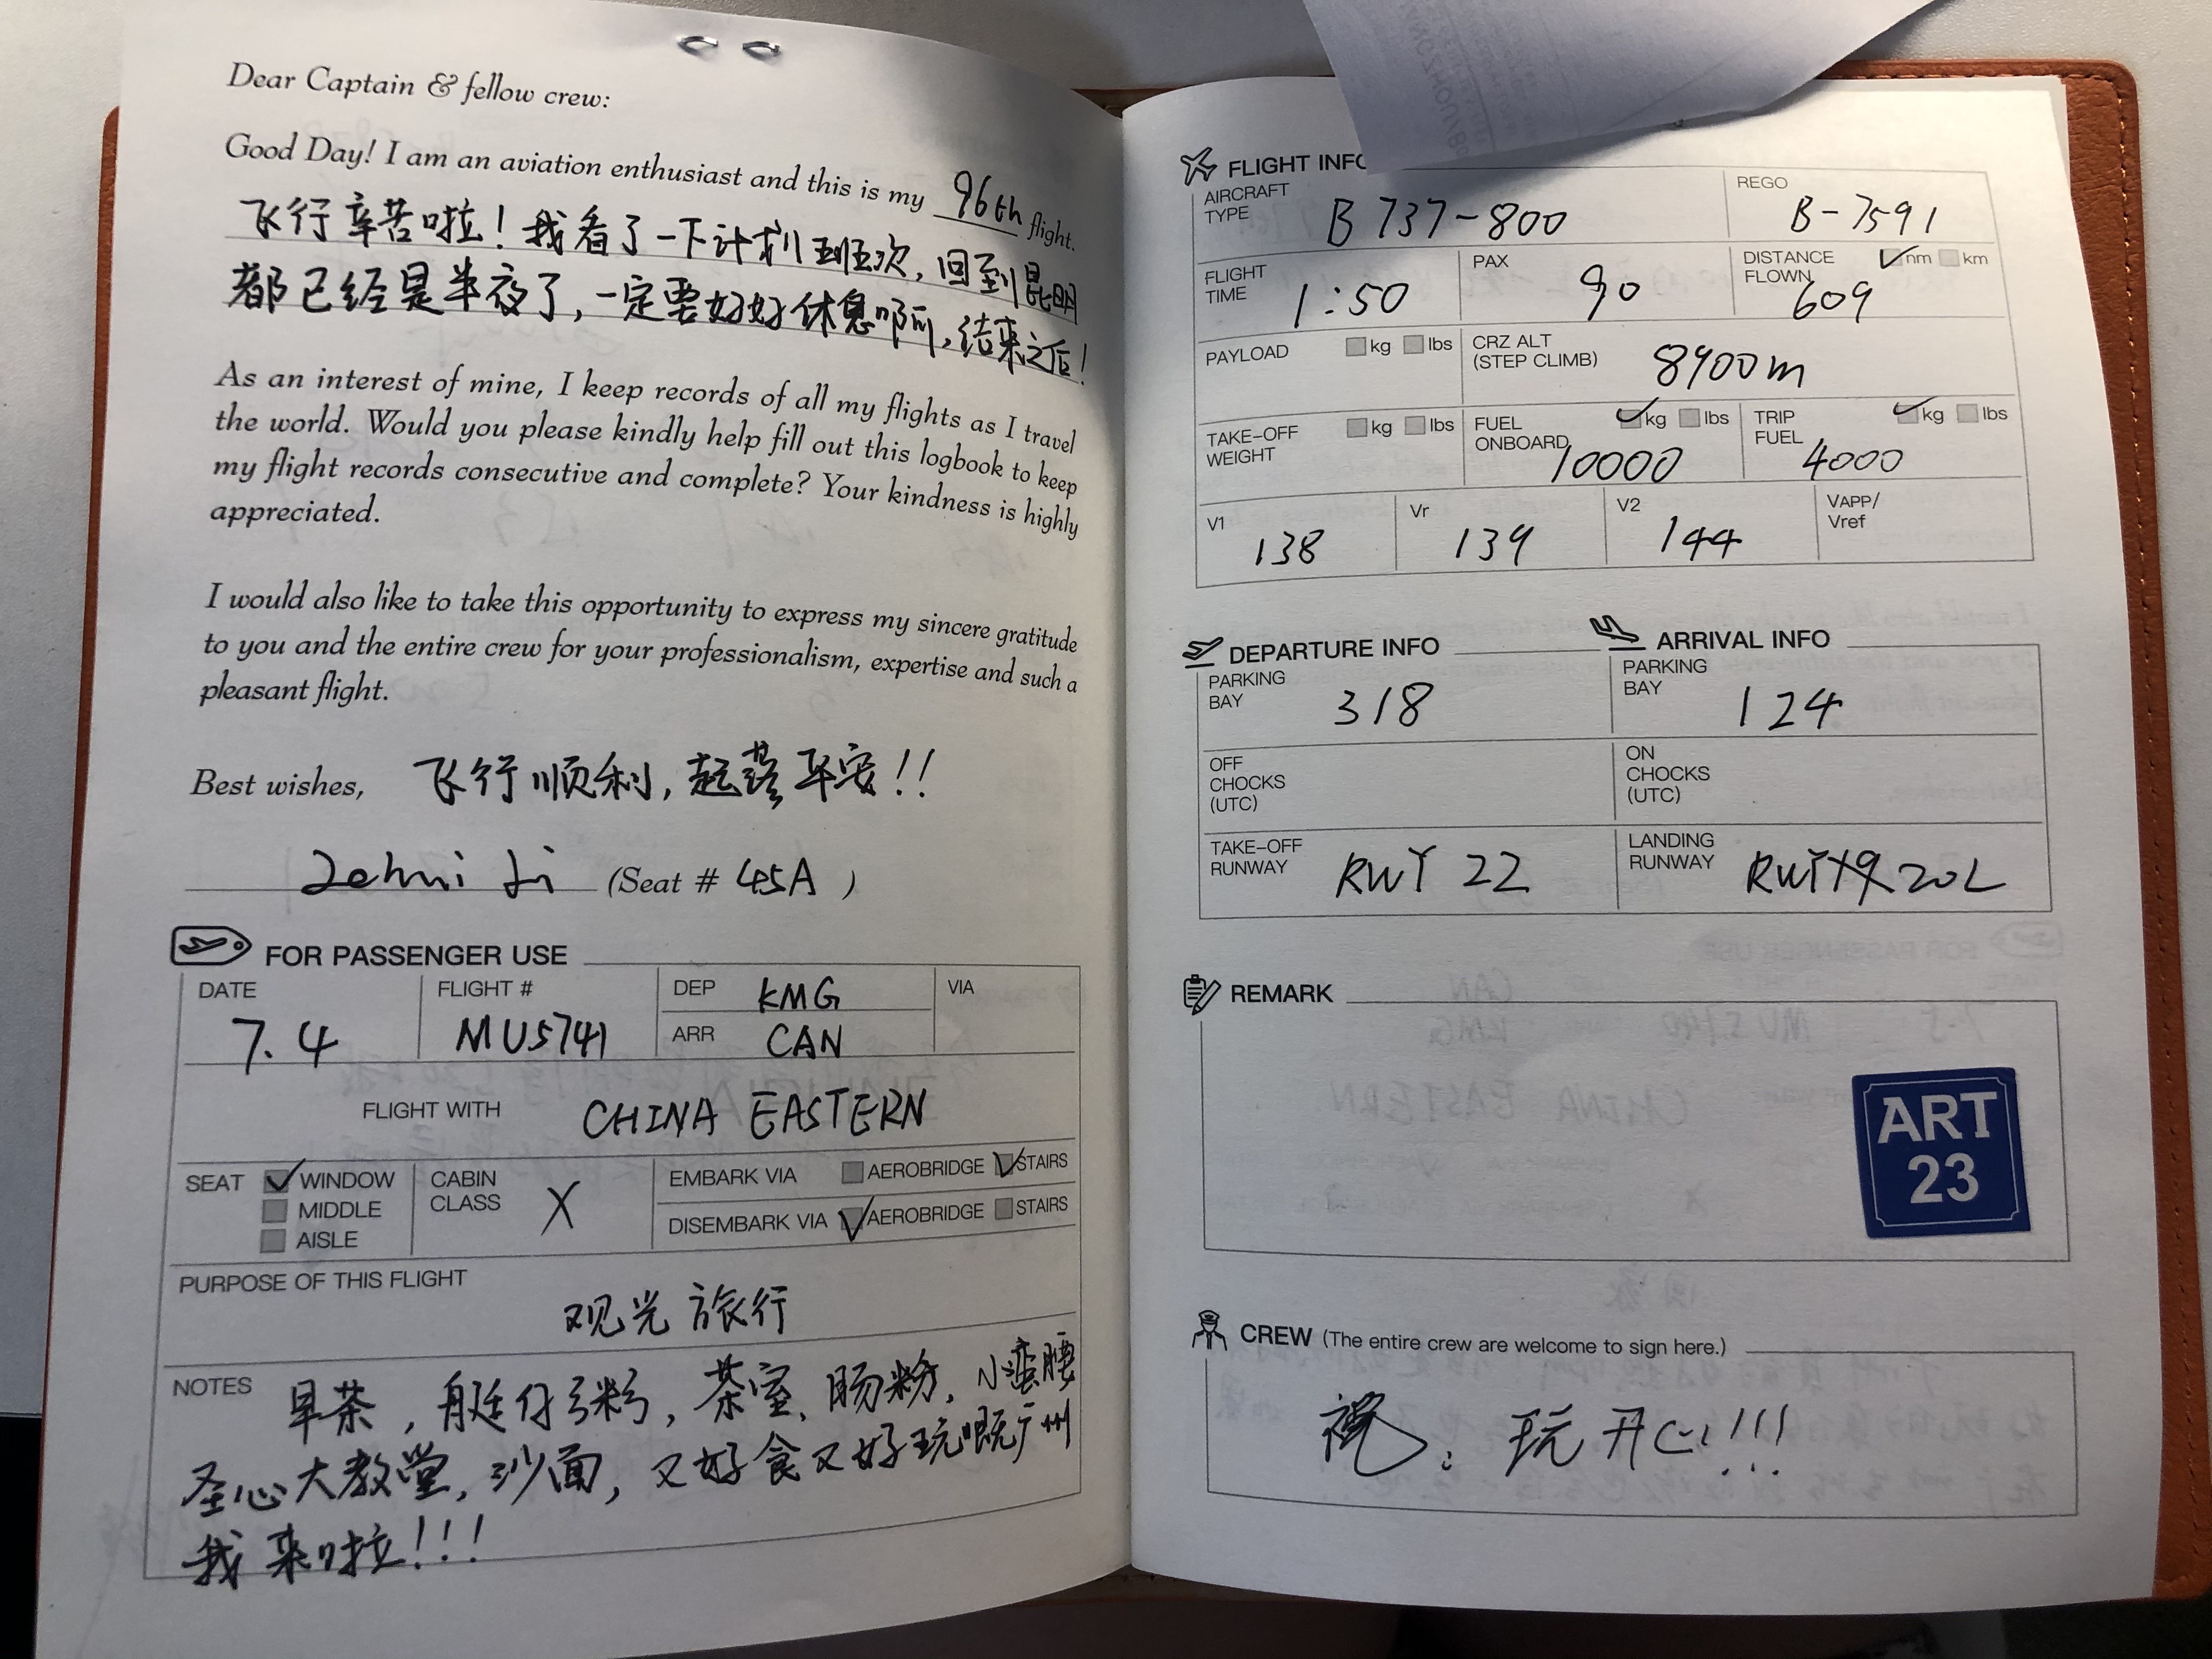 Dear Captain & fellow crew:
Good Day! I am an aviation enthusiast and this is my 96th flight.
飞行辛苦啦！我看了一下计划班次，回到昆明
都已经是半夜了，一定要好好休息啊，结束之后！
As an interest of mine, I keep records of all my flights as I travel
the world. Would you please kindly help fill out this logbook to keep
my flight records consecutive and complete? Your kindness is highly
appreciated.
I would also like to take this opportunity to express my sincere gratitude
to you and the entire crew for your professionalism, expertise and such a
pleasant flight.
Best wishes, 飞行顺利，起落平安！！
(Seat # 45A )
FOR PASSENGER USE
DATE 7.4
FLIGHT # MU5741
DEP KMG
ARR CAN
VIA
FLIGHT WITH CHINA EASTERN
SEAT WINDOW
MIDDLE
AISLE
CABIN
CLASS X
EMBARK VIA AEROBRIDGE STAIRS
DISEMBARK VIA AEROBRIDGE STAIRS
PURPOSE OF THIS FLIGHT
观光旅行
NOTES 早茶，艇仔粥，茶室、肠粉、小蛮腰
圣心大教堂，沙面，又好食又好玩嘅广州
我来啦！！！
FLIGHT INFO
AIRCRAFT
TYPE B737-800
REGO
B-7591
FLIGHT
TIME 1:50
PAX
90
DISTANCE nm km
FLOWN
609
PAYLOAD kg lbs
CRZ ALT
(STEP CLIMB) 8900m
TAKE-OFF kg lbs
WEIGHT
FUEL kg lbs
ONBOARD 10000
TRIP kg lbs
FUEL 4000
V1 138
Vr 139
V2 144
VAPP/
Vref
DEPARTURE INFO
PARKING
BAY 318
OFF
CHOCKS
(UTC)
TAKE-OFF
RUNWAY RWY 22
ARRIVAL INFO
PARKING
BAY 124
ON
CHOCKS
(UTC)
LANDING
RUNWAY RWY 20L
REMARK
ART
23
CREW (The entire crew are welcome to sign here.)
祝：玩开心!!!